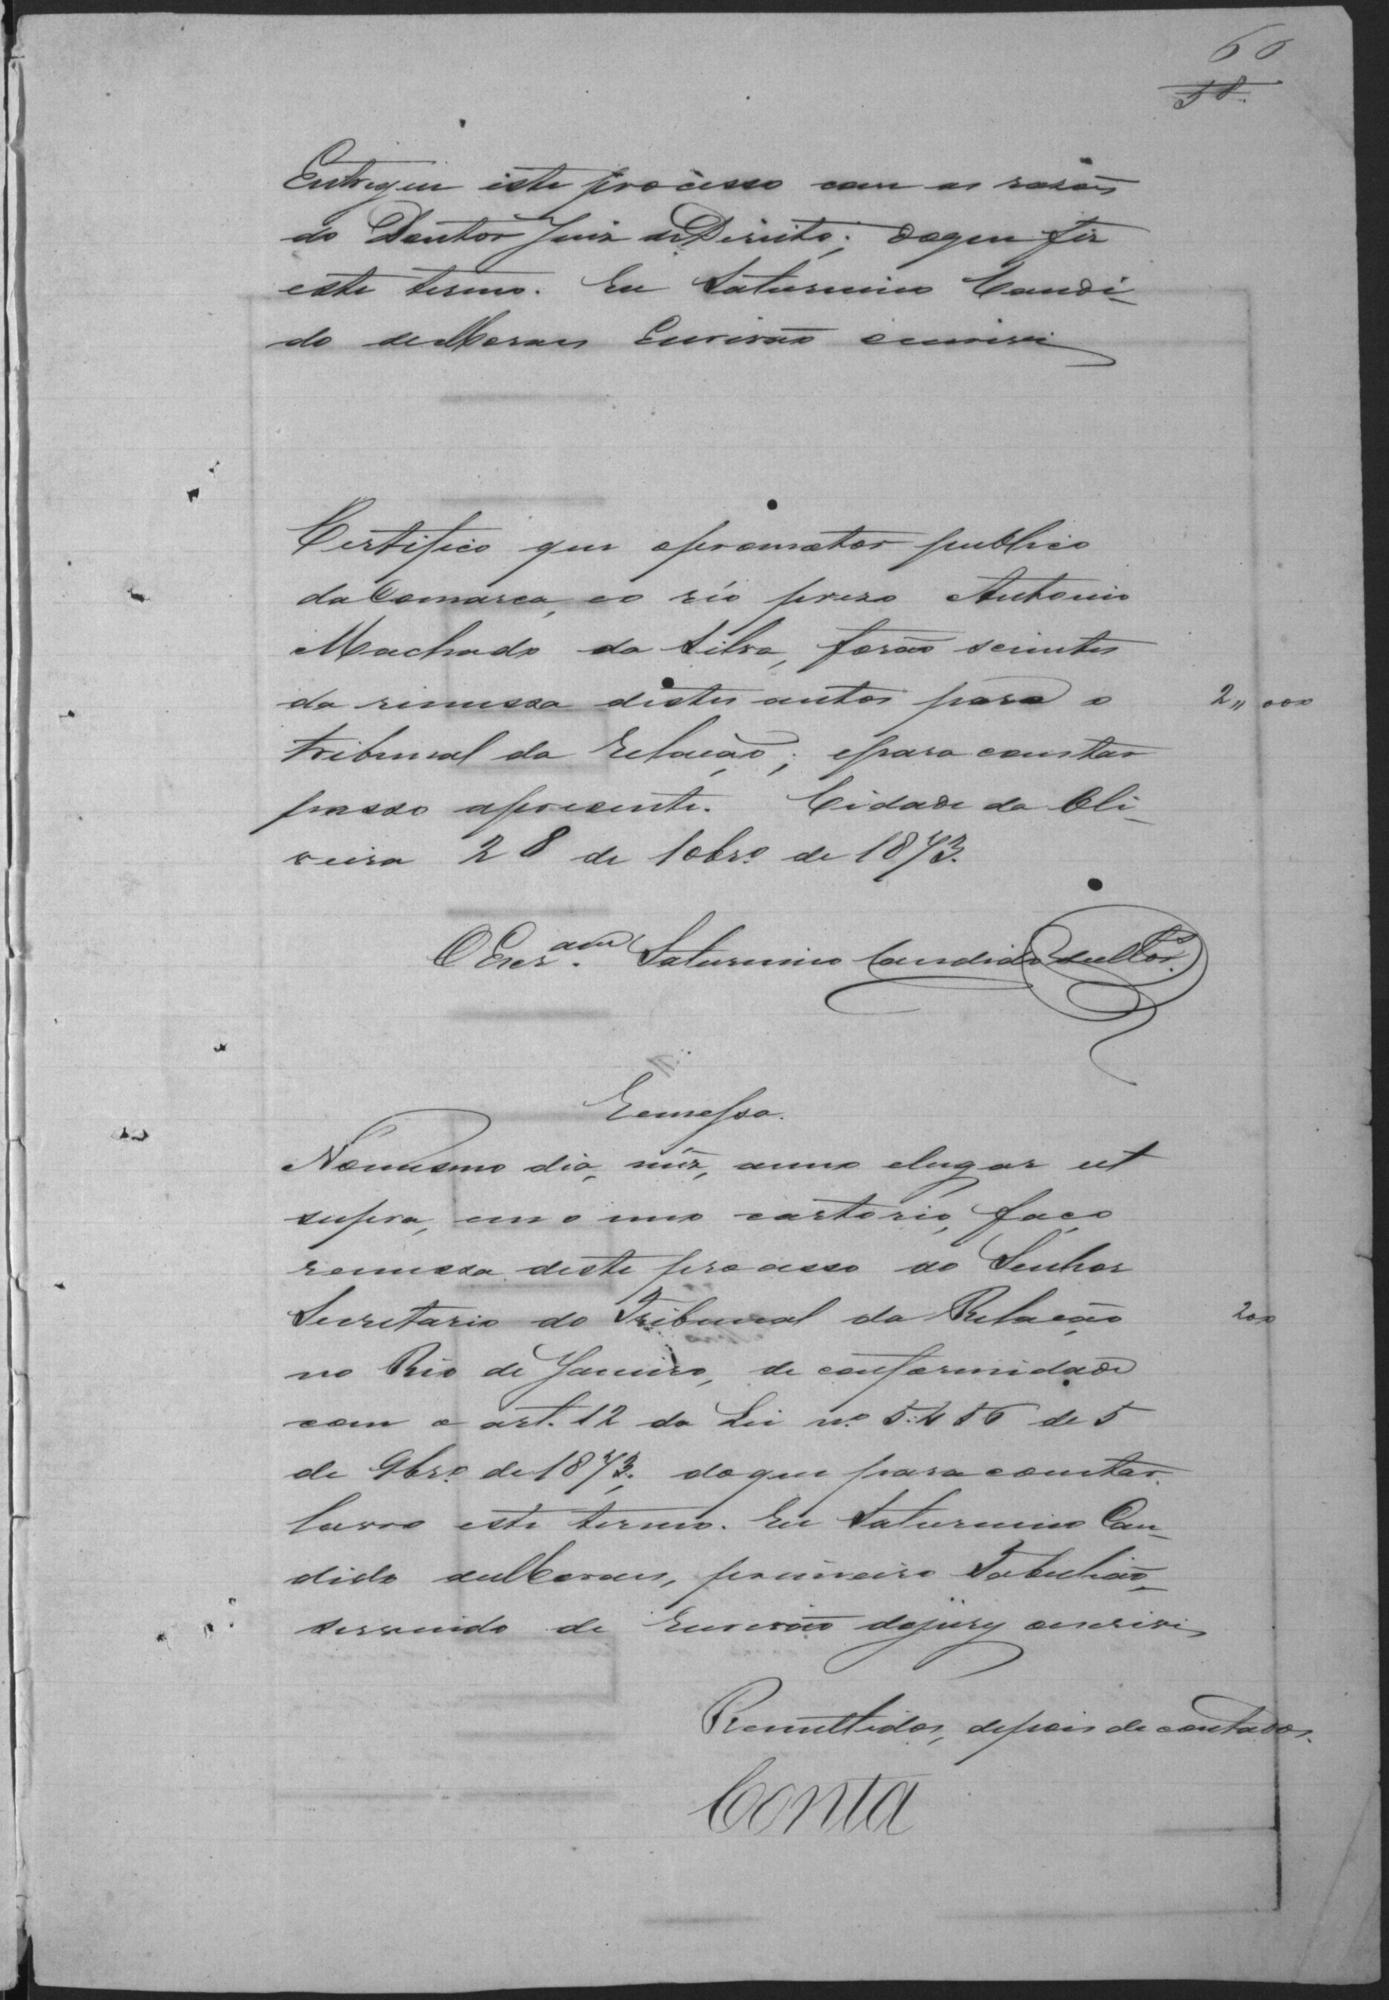 60
58.
Entregue este processo com as rasões
do Doutor Juiz de Direito; do que fiz
este termo. Eu Saturnino Candi-
do de Moraes Escrivão escrivi
Certifico que o promotor publico
da Comarca, e o réo prezo Antonio
Machado da Silva, forão scientes
da remessa destes autos para o 2,,000
tribunal da Relação; e para constar
passo a presente. Cidade da Oli-
veira 28 de 10brº de 1873.
O Escr.am Saturnino Candido de Mor.
Remessa.
No mesmo dia, mez, anno e lugar ut
supra, em o meo cartorio, faço
remessa deste processo ao Senhor
Secretario do Tribunal da Relação 200
no Rio de Janeiro, de conformidade
com o art. 12 da Lei nº 5:456 de 5
de 9brº de 1873; do que para constar
lavro este termo. Eu Saturnino Can-
dido de Moraes, primeiro Tabelião,
servindo de Escrivão do jury escrivi
Remettidos, depois de contados.
Conta